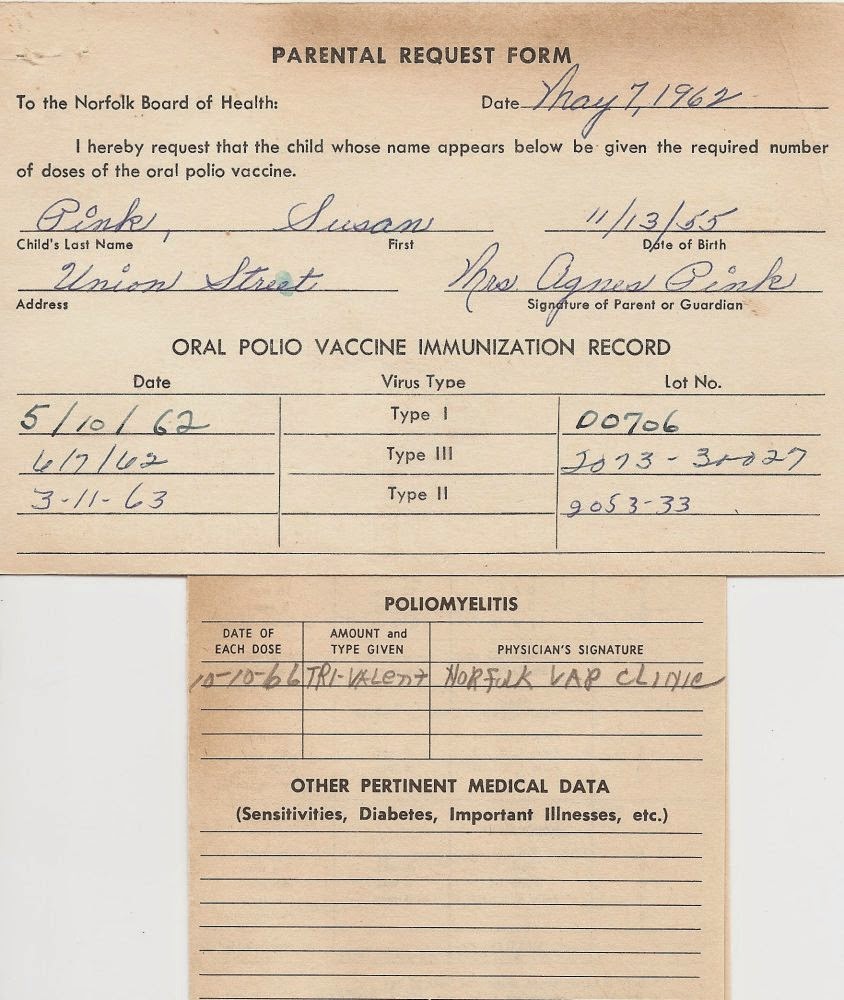 PARENTAL REQUEST FORM
To the Norfolk Board of Health: Date May 7, 1962
I hereby request that the child whose name appears below be given the required number
of doses of the oral polio vaccine.
Pink, Susan 11/13/55
Child's Last Name First Date of Birth
Union Street Mrs Agnes Pink
Address Signature of Parent or Guardian
ORAL POLIO VACCINE IMMUNIZATION RECORD
Date Virus Type Lot No.
5/10/62 Type I 00706
6/7/62 Type III
3-11-63 Type II 2053-33
POLIOMYELITIS
DATE OF AMOUNT and
EACH DOSE TYPE GIVEN PHYSICIAN'S SIGNATURE
10-10-66 TRI-VALENT NORFOLK CLINIC
OTHER PERTINENT MEDICAL DATA
(Sensitivities, Diabetes, Important Illnesses, etc.)